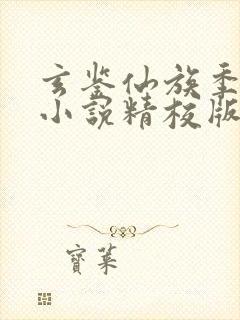 玄鉴仙族季
小説精校版
寶萊